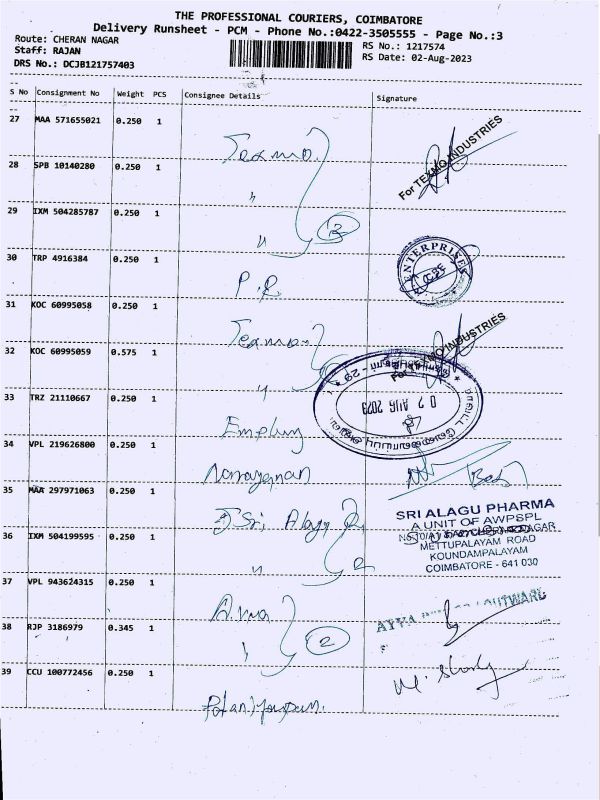 THE PROFESSIONAL COURIERS, COIMBATORE
Delivery Runsheet - PCM - Phone No.:0422-3505555 - Page No.:3
Route: CHERAN NAGAR
RS No.: 1217574
Staff: RAJAN
RS Date: 02-Aug-2023
DRS No.: DCJB121757403
S No Consignment No Weight PCS Consignee Details Signature
27 MAA 571655021 0.250 1
Texmo
For TEXMO INDUSTRIES
28 SPB 10140280 0.250 1
"
29 IXM 504285787 0.250 1
" 3
30 TRP 4916384 0.250 1
P.R
ENTERPRISES
CBE
31 KOC 60995058 0.250 1
Texmo
For TEXMO INDUSTRIES
32 KOC 60995059 0.575 1
"
33 TRZ 21110667 0.250 1
02 AUG 2023
34 VPL 219626800 0.250 1
Narrayanan
35 MAA 297971063 0.250 1
Sri Alagu
SRI ALAGU PHARMA
A UNIT OF AWPSPL
METTUPALAYAM ROAD
KOUNDAMPALAYAM
COIMBATORE - 641 030
36 IXM 504199595 0.250 1
" 2
37 VPL 943624315 0.250 1
38 RJP 3186979 0.345 1
2
39 CCU 100772456 0.250 1